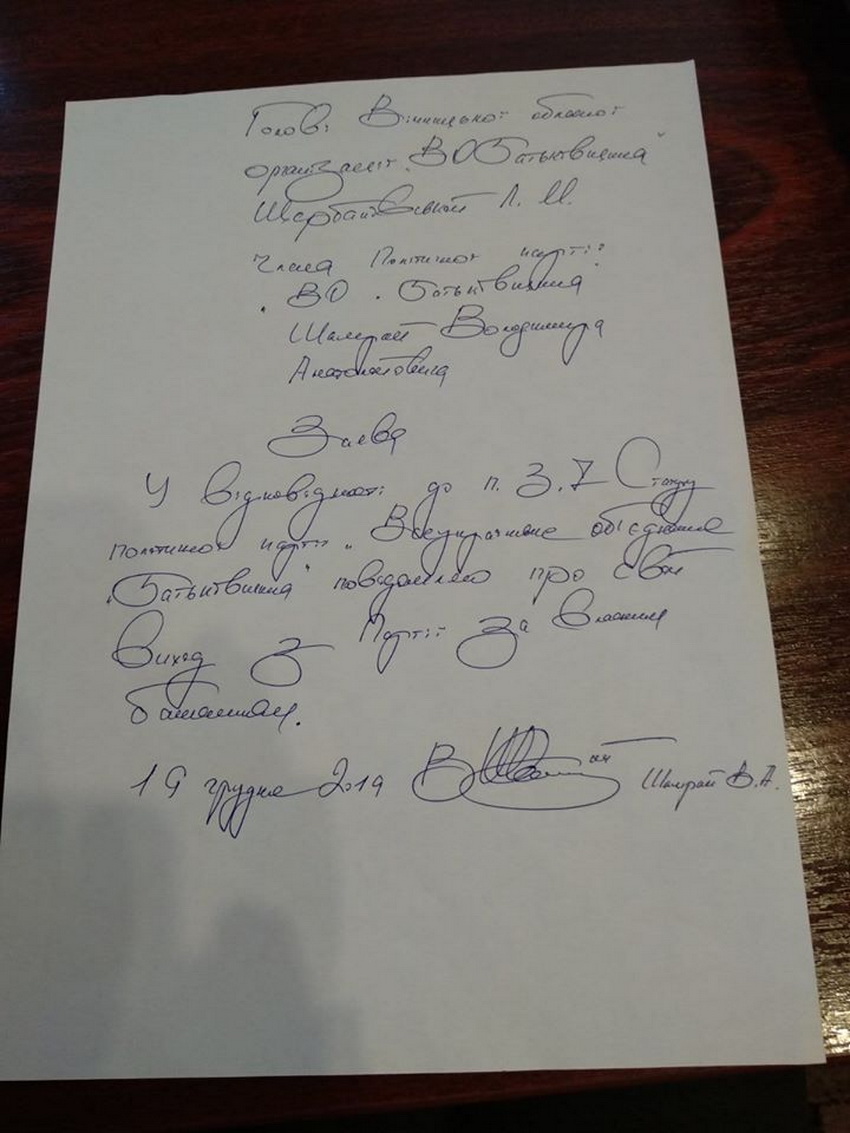 Голові Вінницької обласної
організації "ВО Батьківщина"
Щербаківській Л. М.
Члена Політичної партії
"ВО "Батьківщина"
Шамрай Володимира
Анатолійовича
Заява
У відповідності до п. 3.7 Статуту
політичної партії "Всеукраїнське об'єднання
"Батьківщина" повідомляю про свій
Вихід з Партії за власним
бажанням.
19 грудня 2019 Шамрай В.А.